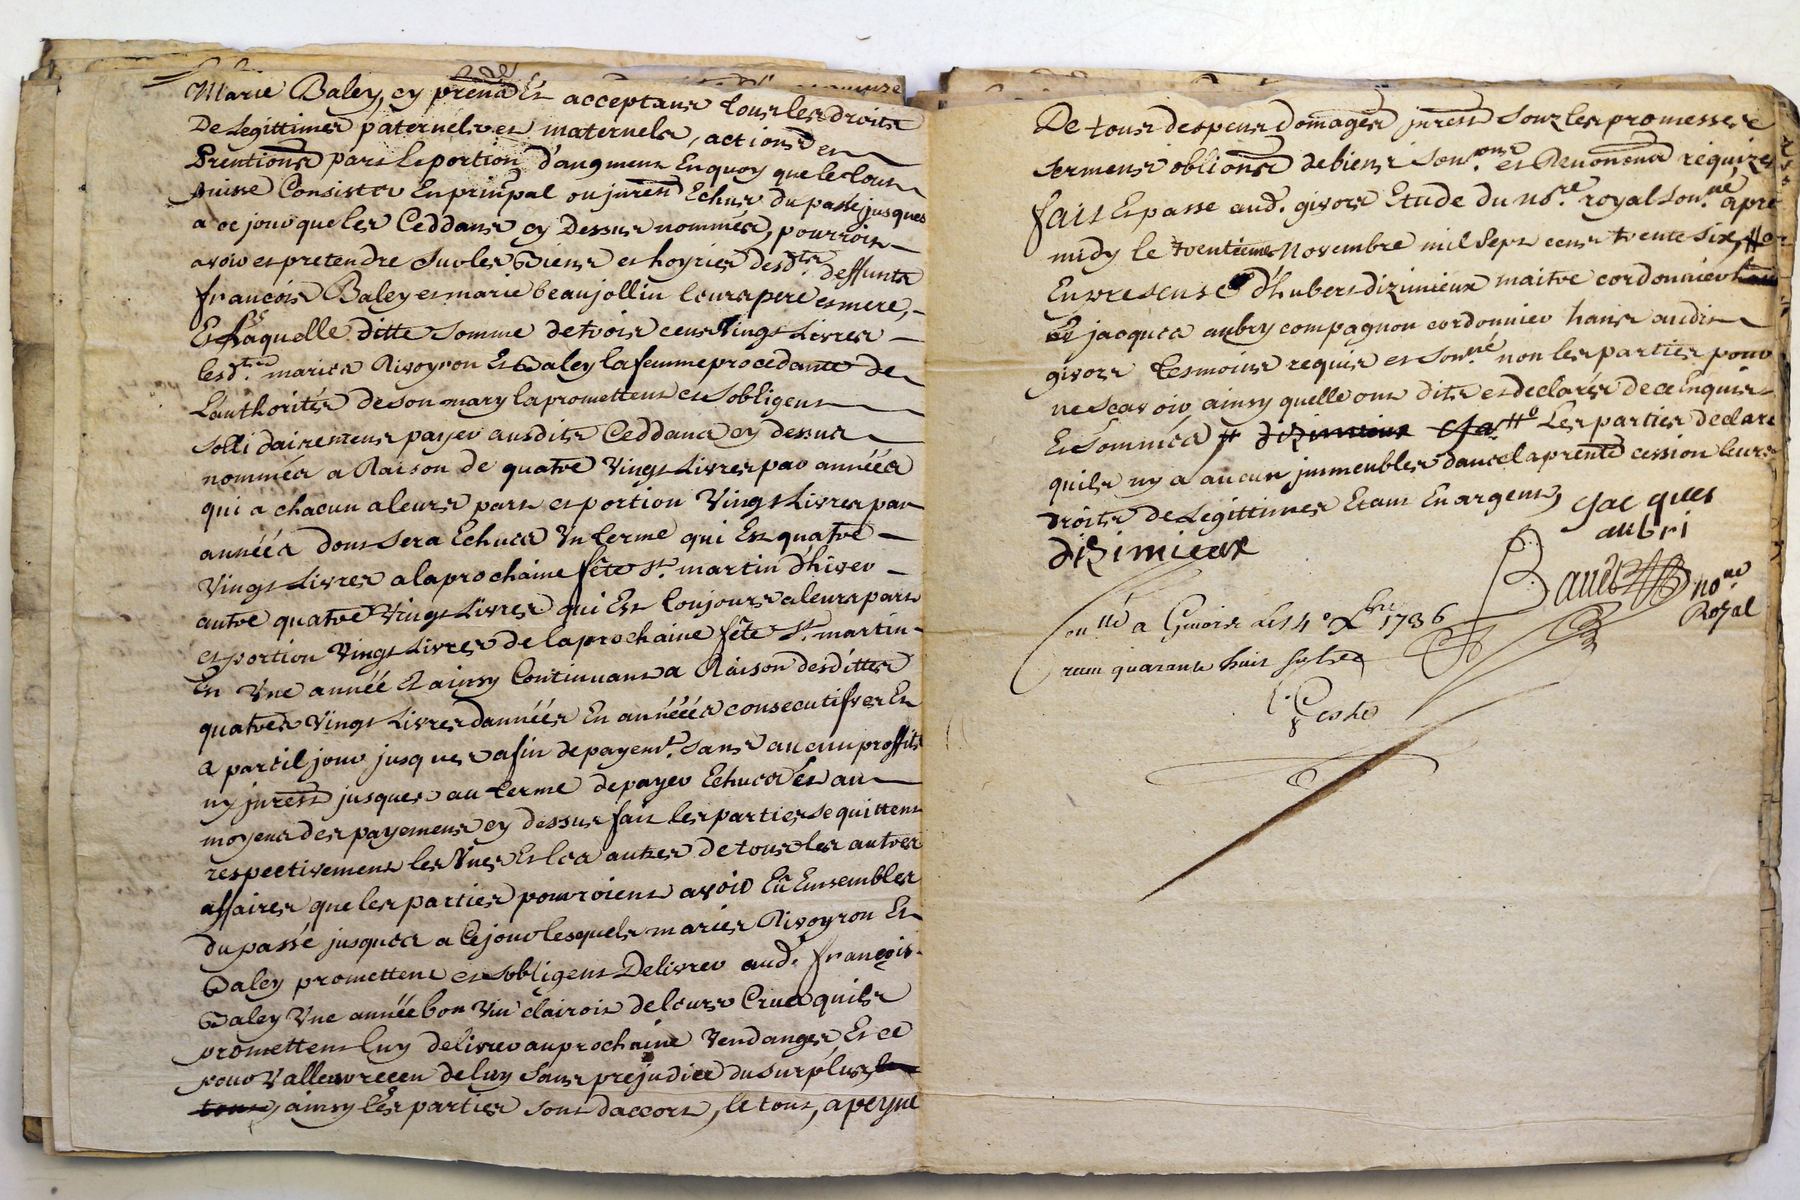 Marie Baley, cy prend Et acceptans tous les droits
De Legittimes paternels et maternels, actions et
Prentions part et portion d'augment Enquoy que le tout
puisse Consister En prinpal ou jnrest Echus du passé jusques
a ce jour que les Ceddans cy Dessus nommés, pourroient
avoir et pretendre sur les Biens et hoyries desdts. deffunts
francois Baley et marie beaujollin leurs pere et mere,
Et laquelle ditte somme de trois cens Vingt Livres
lesdts. mariés Rivoyron Et Baley la femme procedante de
L'authorités de son mary la promettent et sobligent
Sollidairement payer ausdits Ceddans cy dessus
nommés a Raison de quatre Vingt Livres par années
qui a chacun a leurs part et portion Vingt Livres par
années dont sera Echues Un terme qui Est quatre
Vingt Livres a la prochaine fête St. martin d'hiver
autre quatre Vingt Livres qui Est toujours a leurs part
et portion Vingt Livres de la prochaine fête St. martin
En Vne année Et ainsy Continuans a Raison desdittes
quatres Vingt Livres dannéés En annéés consecutifves Et
a pareil jour jusques afin de payemt. sans aucun proffits
ny jnrest jusques au terme de payer Echues Et au
moyens des payemens cy dessus fait les parties se quittent
respectivement les Vnes Et les autres de tous les autres
affaires que les parties pourroient avoir Eu Ensembles
du passé jusques a Ce jour lesquels mariés Rivoyron Et
Baley promettent et sobligent Delivrer aud. françois
Baley Vne année bon vin clairoit de leurs Crus quils
promettent luy delivrer au prochaine Vendanges Et ce
pour Valleur receu de luy sans prejudice du surplus
tout, ainsy les parties sont daccort, le tout, a peyne
De tous despens domages jnrest sous les promesses
sermens oblions de biens soumons. et Renoncons requizes
fait Et passe aud. givors Etude du nore. royal sousné. apre
midy le trentieme Novembre mil Sept cens trente six
En presens d'huberts dizimieux maitre cordonnier
Et jacques aubry compagnon cordonnier hants audit
givors tesmoins requis et sousné non les parties pour
ne scavoir ainsy quelle ont dits et declarés de ce Enquis
Et sommés dizimieux Les parties declare
quils ny a aucun jmmeubles dans la prente cession leurs
Droits de Legittimes Etant En argent, Jacques
aubri
dizimieux
no.re
Royal
con.llé a Givors le 14e Xbre 1736
receu quarante huit sols